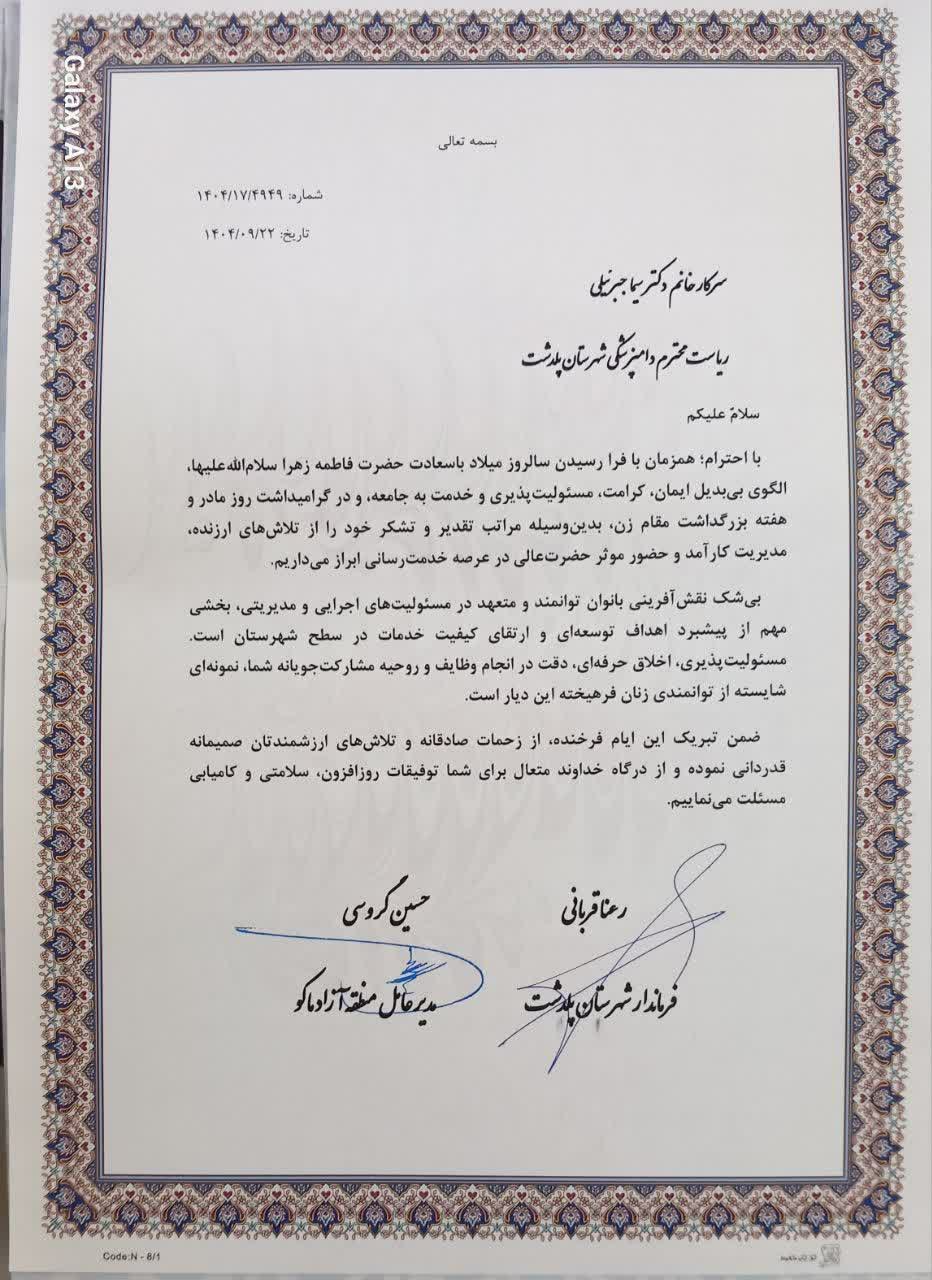 بسمه تعالی
شماره: ۱۴۰۴/۱۷/۴۹۴۹
تاریخ: ۱۴۰۴/۰۹/۲۲
سرکار خانم دکتر سیما جبرئیلی
ریاست محترم دامپزشکی شهرستان پلدشت
سلامٌ علیکم
با احترام؛ همزمان با فرا رسیدن سالروز میلاد باسعادت حضرت فاطمه زهرا سلام‌الله‌علیها،
الگوی بی‌بدیل ایمان، کرامت، مسئولیت‌پذیری و خدمت به جامعه، و در گرامیداشت روز مادر و
هفته بزرگداشت مقام زن، بدین‌وسیله مراتب تقدیر و تشکر خود را از تلاش‌های ارزنده،
مدیریت کارآمد و حضور موثر حضرت‌عالی در عرصه خدمت‌رسانی ابراز می‌داریم.
بی‌شک نقش‌آفرینی بانوان توانمند و متعهد در مسئولیت‌های اجرایی و مدیریتی، بخشی
مهم از پیشبرد اهداف توسعه‌ای و ارتقای کیفیت خدمات در سطح شهرستان است.
مسئولیت‌پذیری، اخلاق حرفه‌ای، دقت در انجام وظایف و روحیه مشارکت‌جویانه شما، نمونه‌ای
شایسته از توانمندی زنان فرهیخته این دیار است.
ضمن تبریک این ایام فرخنده، از زحمات صادقانه و تلاش‌های ارزشمندتان صمیمانه
قدردانی نموده و از درگاه خداوند متعال برای شما توفیقات روزافزون، سلامتی و کامیابی
مسئلت می‌نماییم.
رعنا قربانی
فرماندار شهرستان پلدشت
حسین گروسی
مدیرعامل منطقه آزاد ماکو
Code:N - 8/1
Galaxy A13